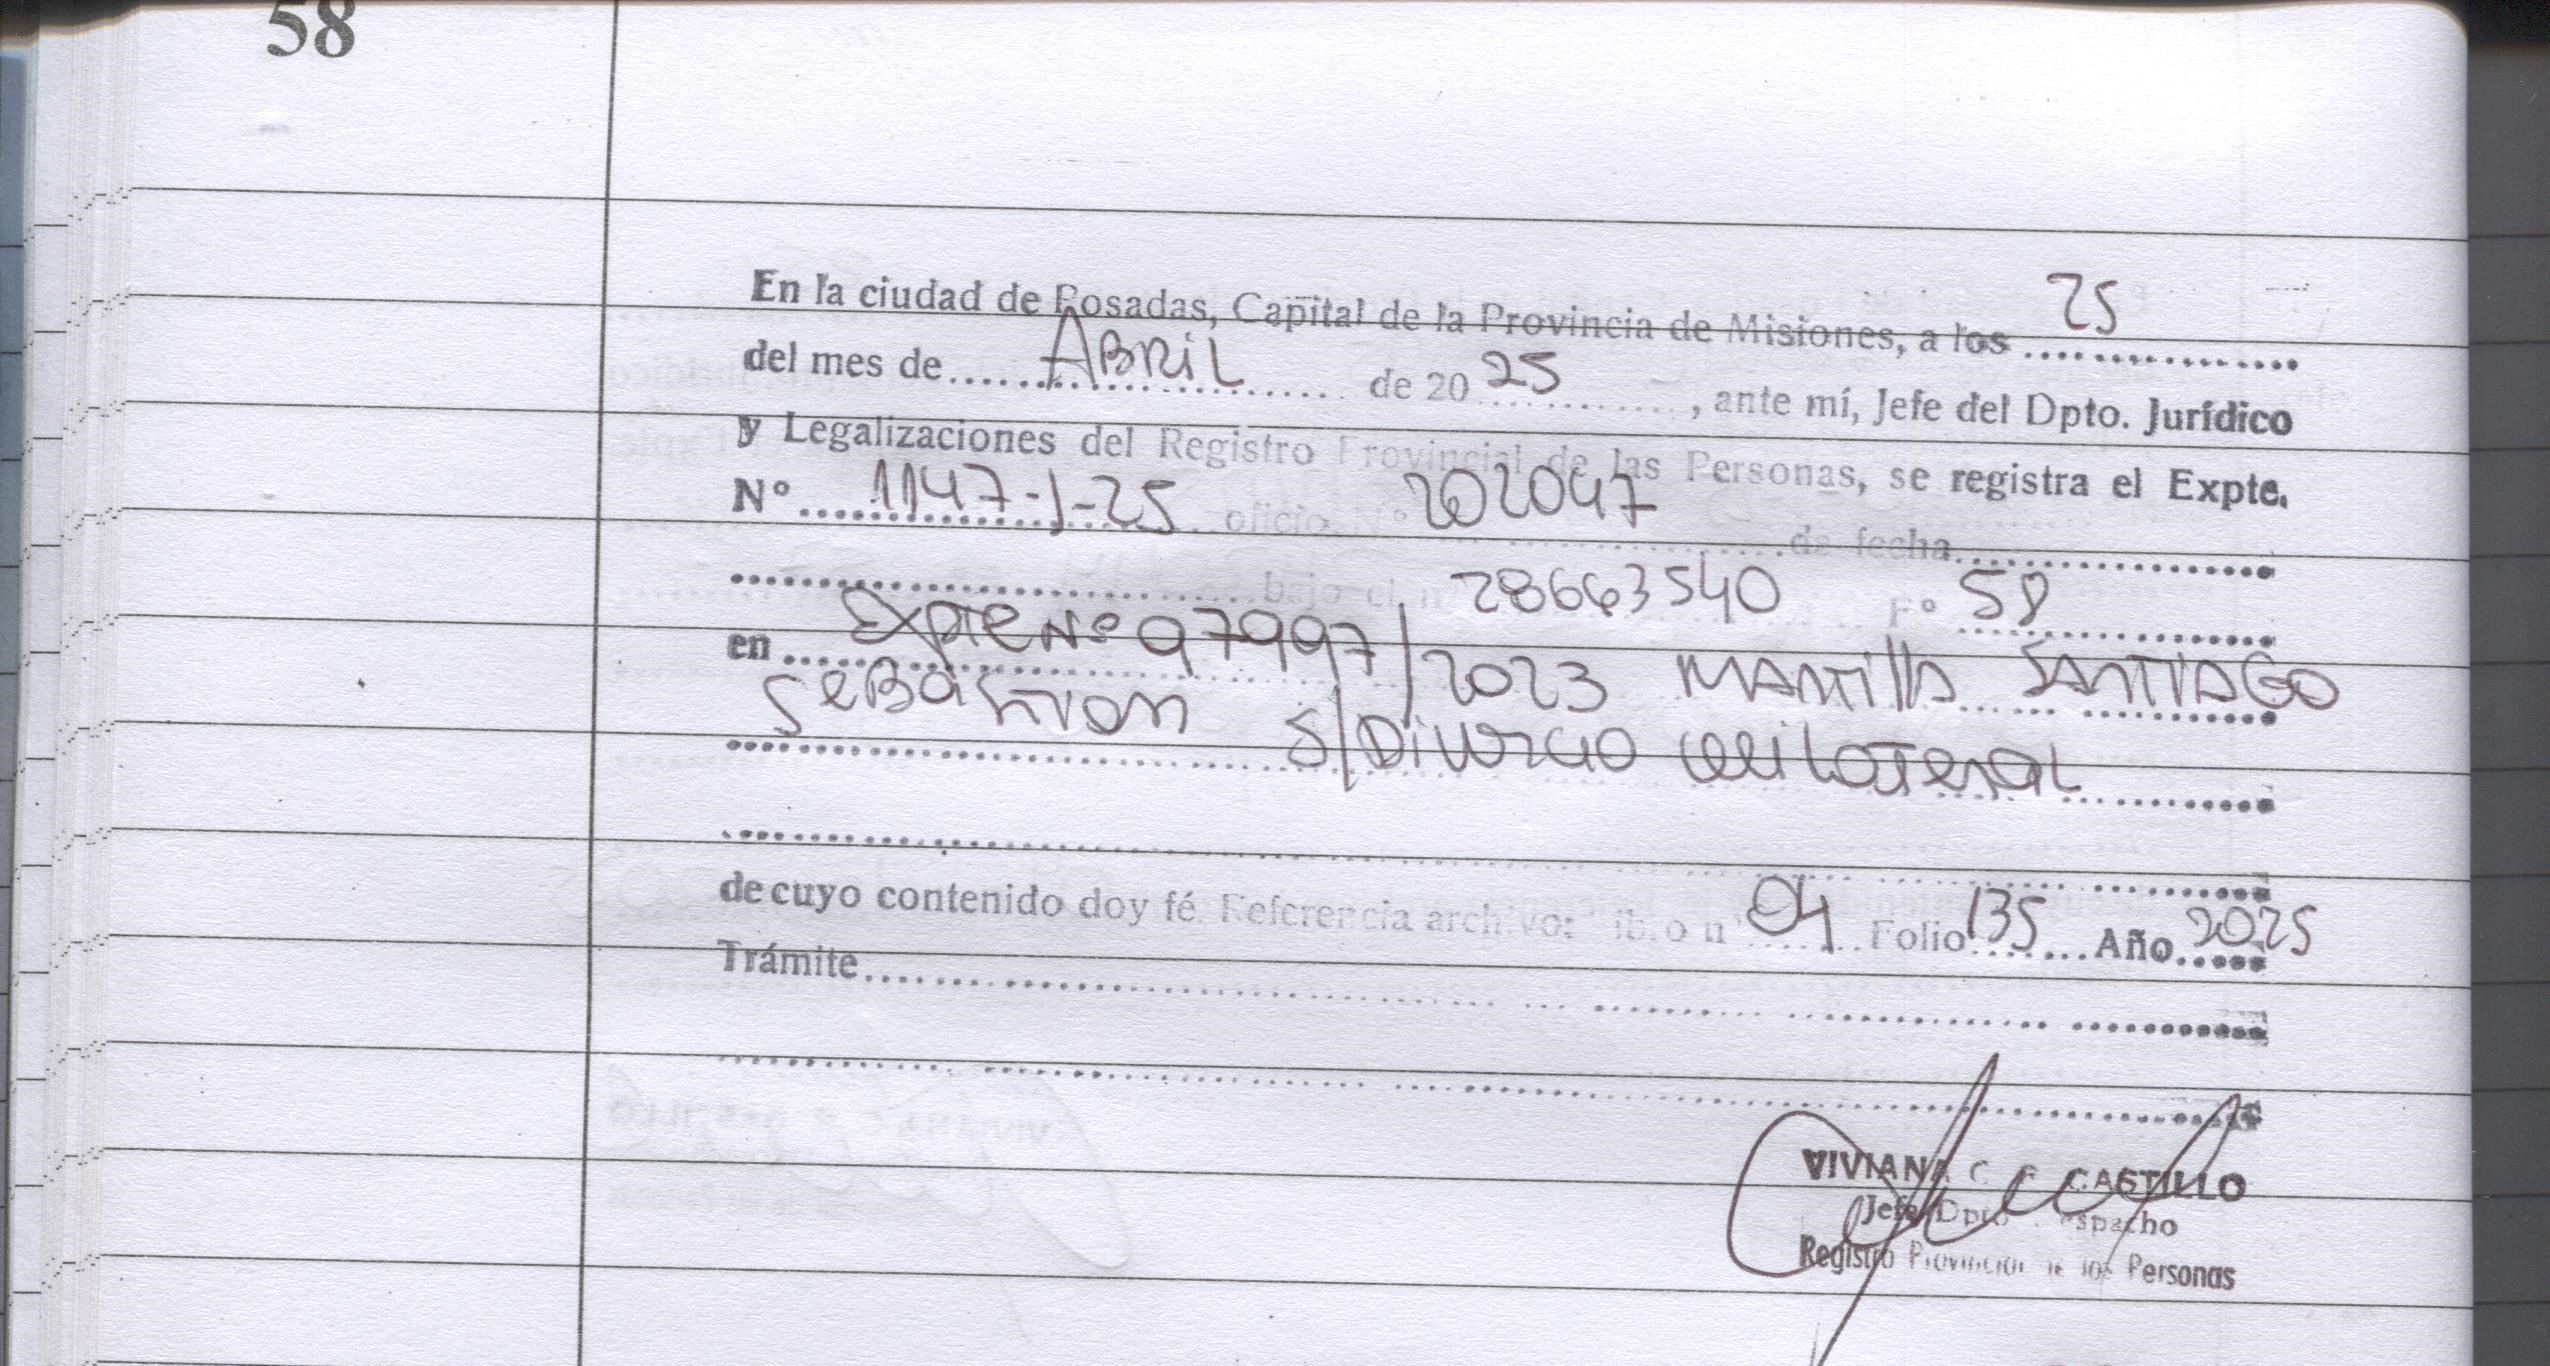 58
En la ciudad de Posadas, Capital de la Provincia de Misiones, a los 25
del mes de ABRIL de 20 25, ante mí, Jefe del Dpto. Jurídico
y Legalizaciones del Registro Provincial de las Personas, se registra el Expte.
Nº 1147-J-25 oficio Nº 202047 de fecha
bajo el n 28663540 Fº 58
en Expte Nº 97997/2023 MANTILLA SANTIAGO
SEBASTIAN S/DIVORCIO UNILATERAL
de cuyo contenido doy fé. Referencia archivo: Libro nº 04 Folio 135 Año 2025
Trámite
VIVIANA C. CASTILLO
Jefe Dpto. Despacho
Registro Provincial de las Personas